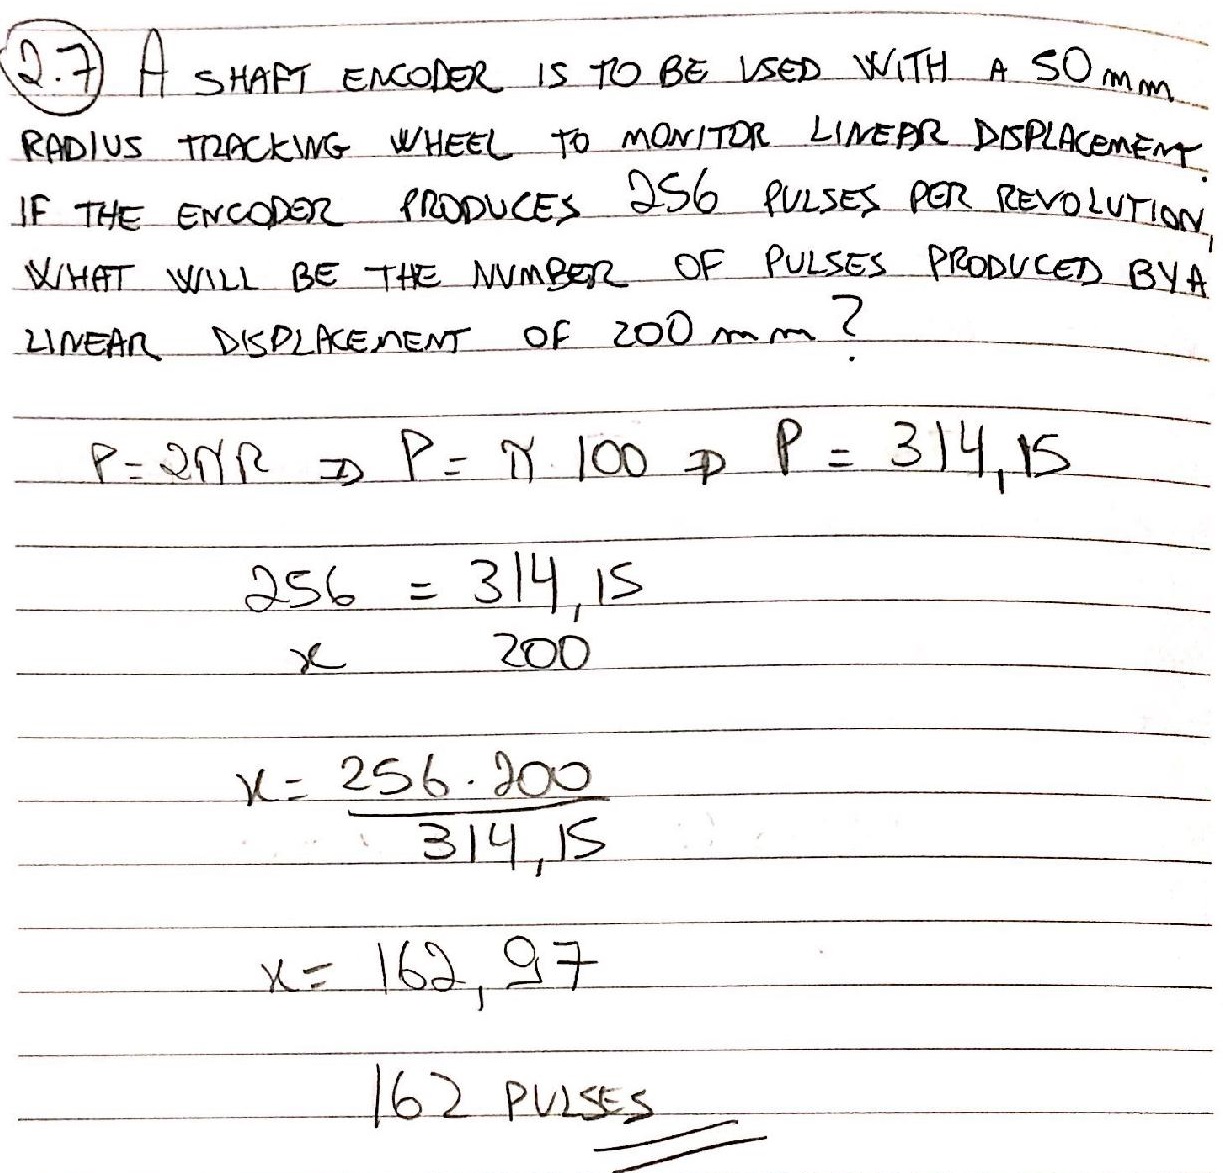 2.7 A SHAFT ENCODER IS TO BE USED WITH A 50 mm
RADIUS TRACKING WHEEL TO MONITOR LINEAR DISPLACEMENT.
IF THE ENCODER PRODUCES 256 PULSES PER REVOLUTION,
WHAT WILL BE THE NUMBER OF PULSES PRODUCED BY A
LINEAR DISPLACEMENT OF 200 mm?
P = 2πR ⇒ P = π · 100 ⇒ P = 314,15
256 = 314,15
x 200
x = 256 · 200
314,15
x = 162,97
162 PULSES